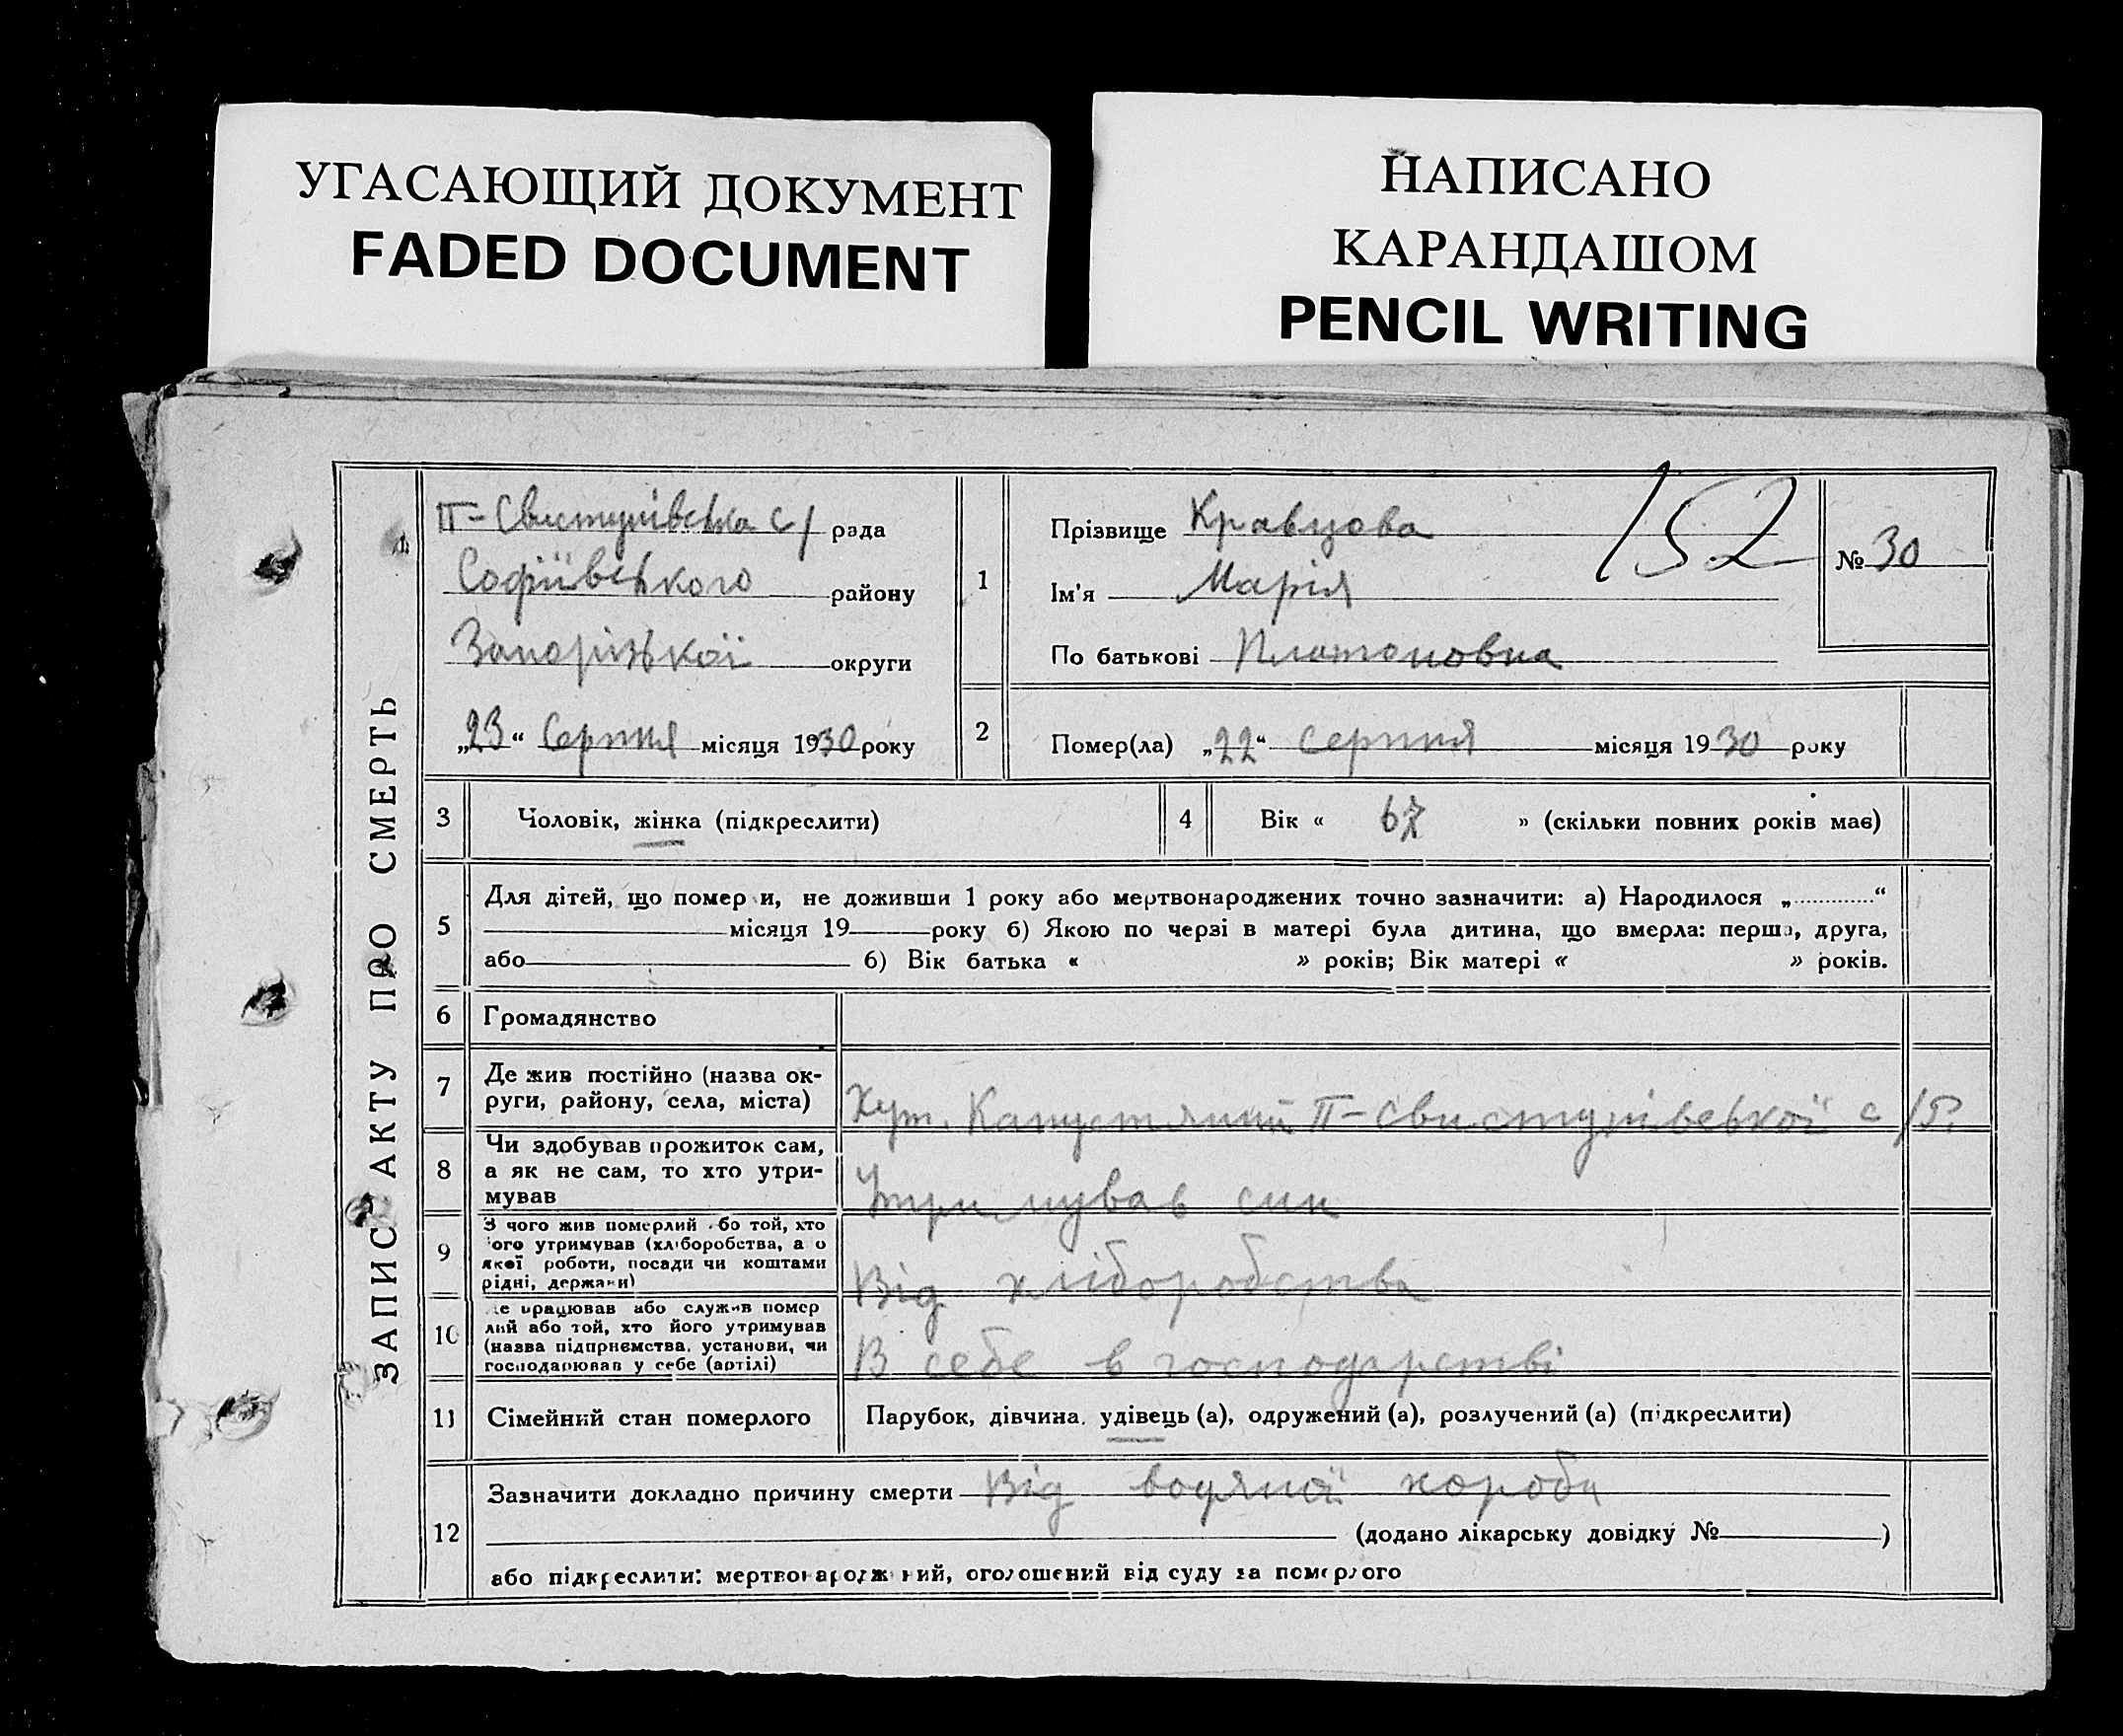 УГАСАЮЩИЙ ДОКУМЕНТ
FADED DOCUMENT
НАПИСАНО
КАРАНДАШОМ
PENCIL WRITING
ЗАПИС АКТУ ПРО СМЕРТЬ
П-Свистунівська с/ рада
Софіївського району
Запорізької округи
„23“ Серпня місяця 1930 року
1
Прізвище Кравцова
Ім'я Марія
По батькові Платоновна
152
№ 30
2
Помер(ла) „22“ серпня місяця 1930 року
3 Чоловік, жінка (підкреслити)
4 Вік « 67 » (скільки повних років має)
5
Для дітей, що помер и, не доживши 1 року або мертвонароджених точно зазначити: а) Народилося „ “
місяця 19 року б) Якою по черзі в матері була дитина, що вмерла: перша, друга,
або б) Вік батька « » років; Вік матері « » років.
6 Громадянство
7 Де жив постійно (назва ок-
руги, району, села, міста)
Хут. Капустяний П-Свистунівської с/р.
8 Чи здобував прожиток сам,
а як не сам, то хто утри-
мував
Утримував син
9 З чого жив померлий або той, хто
його утримував (хліборобства, а о
якої роботи, посади чи коштами
рідні, держави)
Від хліборобства
10 Де працював або служив помер
лий або той, хто його утримував
(назва підприємства, установи, чи
господарював у себе (артілі)
В себе в господарстві
11 Сімейний стан померлого
Парубок, дівчина, удівець (а), одружений (а), розлучений (а) (підкреслити)
12
Зазначити докладно причину смерти Від водяної хороби
(додано лікарську довідку № )
або підкреслити: мертвонароджений, оголошений від суду за померлого